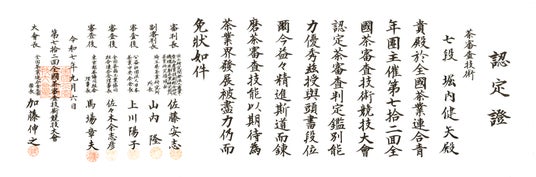 認定證
茶審査技術
七段 堀内健矢殿
貴殿於全國茶業連合青
年團主催第七拾二回全
國茶審査技術競技大會
認定茶審査判定鑑別能
力優秀茲授與頭書段位
爾今益々精進斯道而錬
磨茶審査技能以期待為
茶業界發展被盡力仍而
免狀如件
審判長
佐藤安志
副審判長
山内隆
審査役
上川陽子
審査役
佐々木余志彦
審査役
馬場章夫
令和七年九月六日
第七拾二回全國茶審査技術競技大會
大會長
加藤伸之